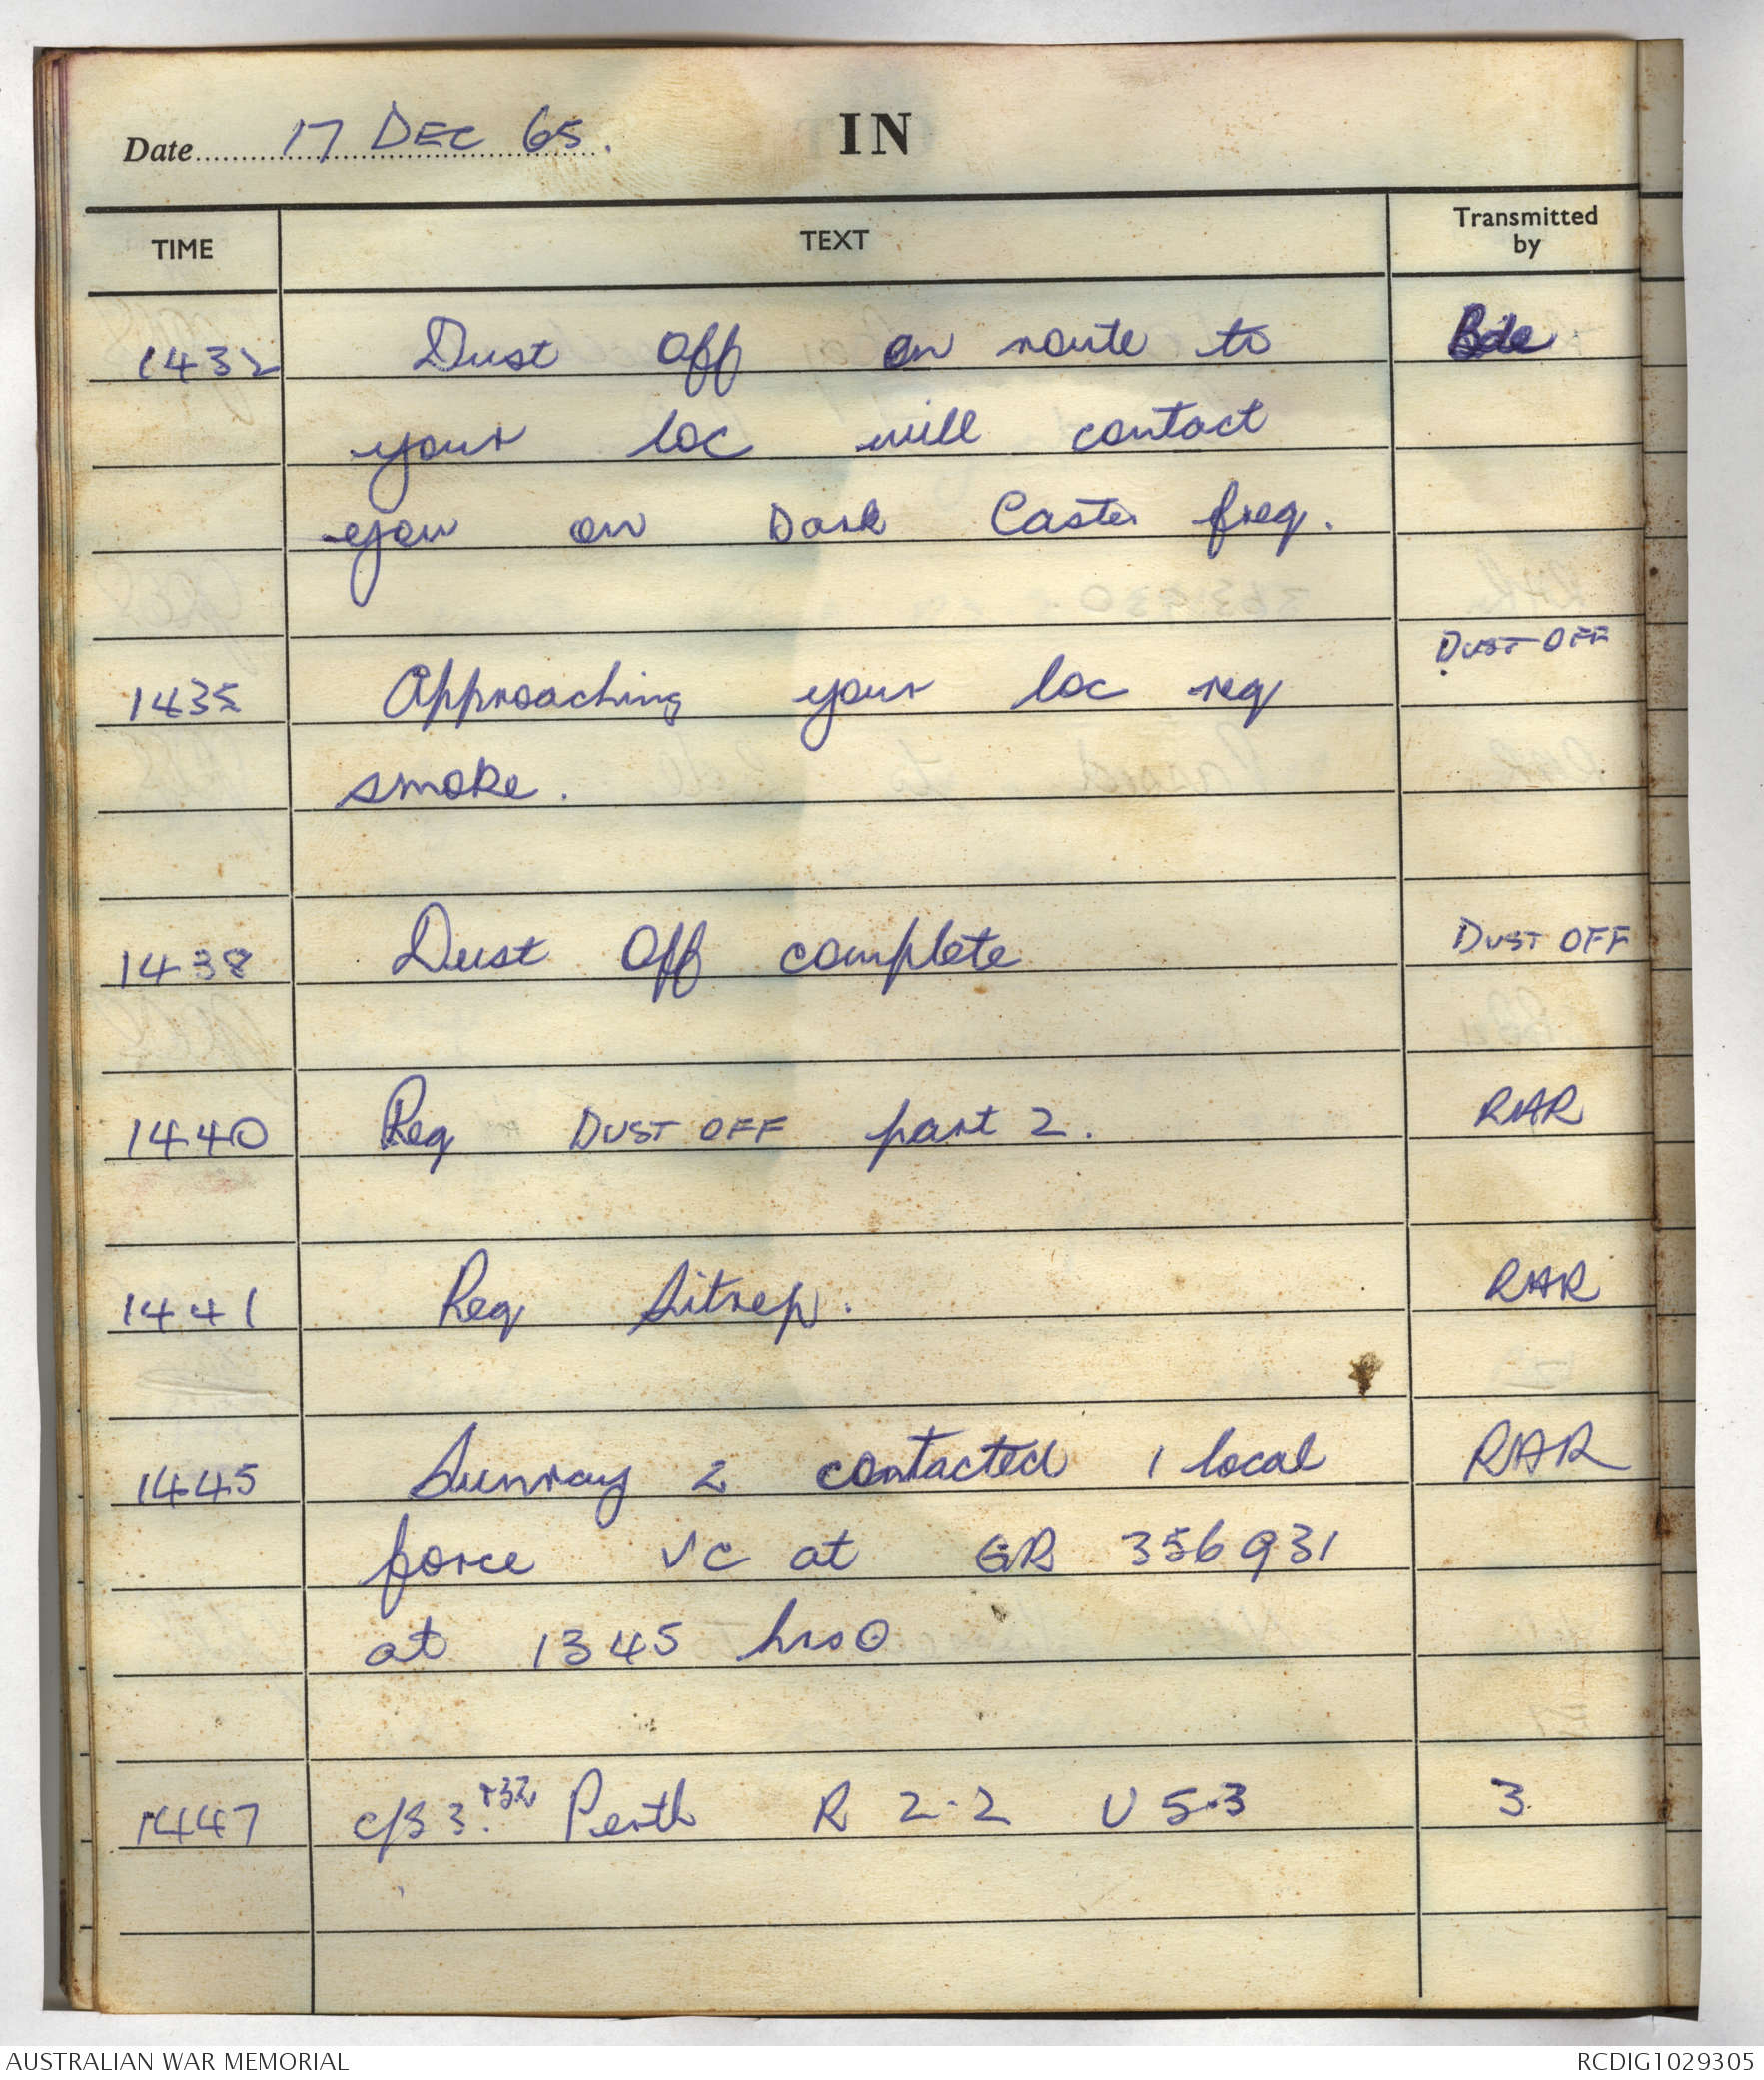 Date 17 DEC 65.
IN
TIME TEXT Transmitted by
1432 Dust Off on route to Bde
your loc will contact
you on Dark Caster freq.
1435 Approaching your loc req DUST OFF
smoke.
1438 Dust Off complete DUST OFF
1440 Req DUST OFF part 2. RAR
1441 Req Sitrep. RAR
1445 Sunray 2 contacted 1 local RAR
force VC at GR 356931
at 1345 hrs
1447 c/s 3. +32 Perth R 2.2 U 5.3 3
AUSTRALIAN WAR MEMORIAL RCDIG1029305